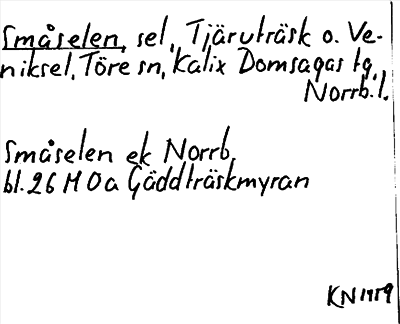 Småselen, sel, Tjäruträsk o. Ve-
niksel, Töre sn, Kalix Domsagas tg,
Norrb. l.
Småselen ek Norrb,
bl. 26 M 0a Gäddträskmyran
KN 1959